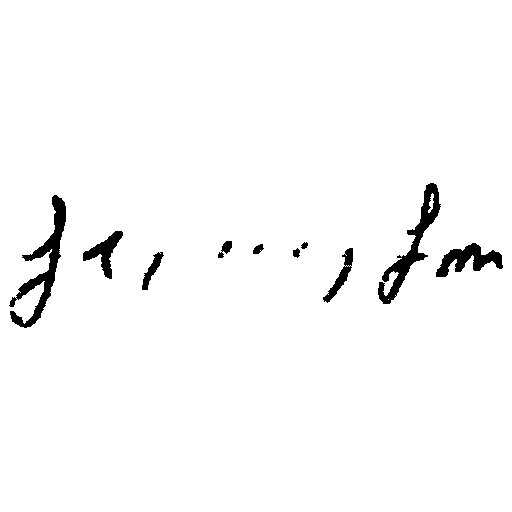 f_1, ..., f_m